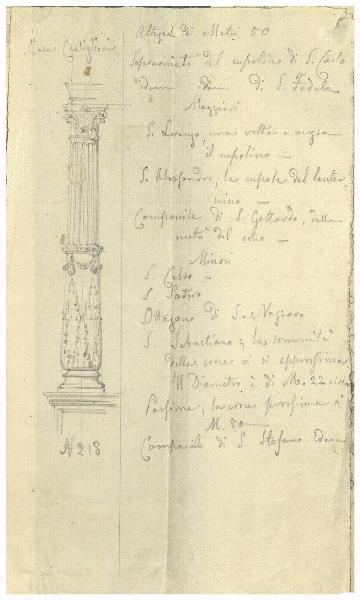 Casa Castiglioni
Altezza di Metri 50
Sopraornato del cupolino di S. Carlo
idem idem di S. Fedele
Maggiori
S. Lorenzo una volta e mezza
il cupolino —
S. Alessandro, la cupola del lanter-
nino —
Campanile di S. Gottardo, della
metà del cono —
Minori
S. Celso —
S. Satiro
Ottagono di S. Nazzaro
S. Sebastiano, la sommità
della croce vi si approssima
Il Diametro è di M. 22 circa
Passione, la croce prossima a
M. 50 —
Campanile di S. Stefano idem
N 218